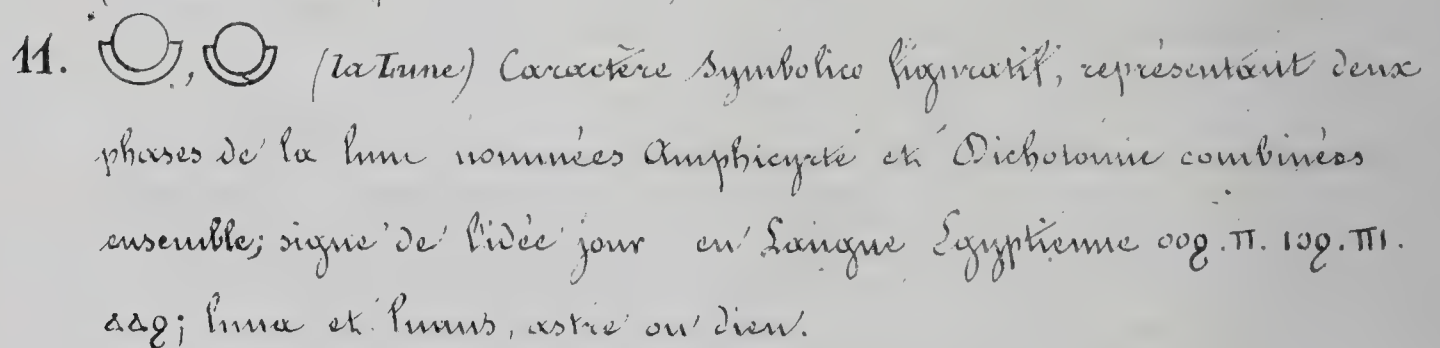 11. , (la Lune) Caractère symbolico figuratif, représentant deux
phases de la lune nommées Amphicyrte et Dichotomie combinées
ensemble; signe de l'idée jour en Langue Egyptienne ⲟⲟϩ.Ⲡ. ⲓⲟϩ.ⲠⲒ.
ⲁⲁϩ; luna et lunus, astre ou dieu.